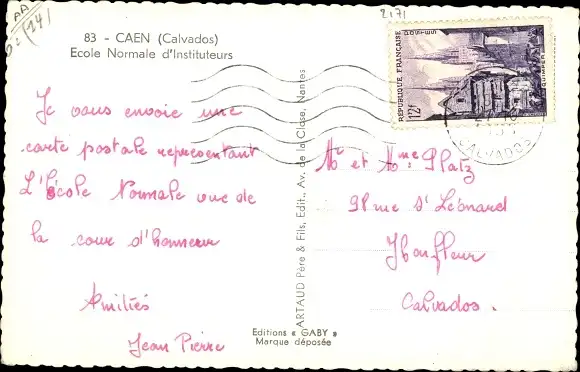 AA
2171
83 - CAEN (Calvados)
Ecole Normale d'Instituteurs
Je vous envoie une
carte postale représentant
L'École Normale vue de
la cour d'honneur
Amitiés
Jean Pierre
Editions « GABY »
Marque déposée
ARTAUD Père & Fils, Edit., Av. de la Close, Nantes
RÉPUBLIQUE FRANÇAISE
POSTES
12F
QUIMPER
CALVADOS
Mr et Mme Platz
91 rue St Léonard
Honfleur
Calvados.